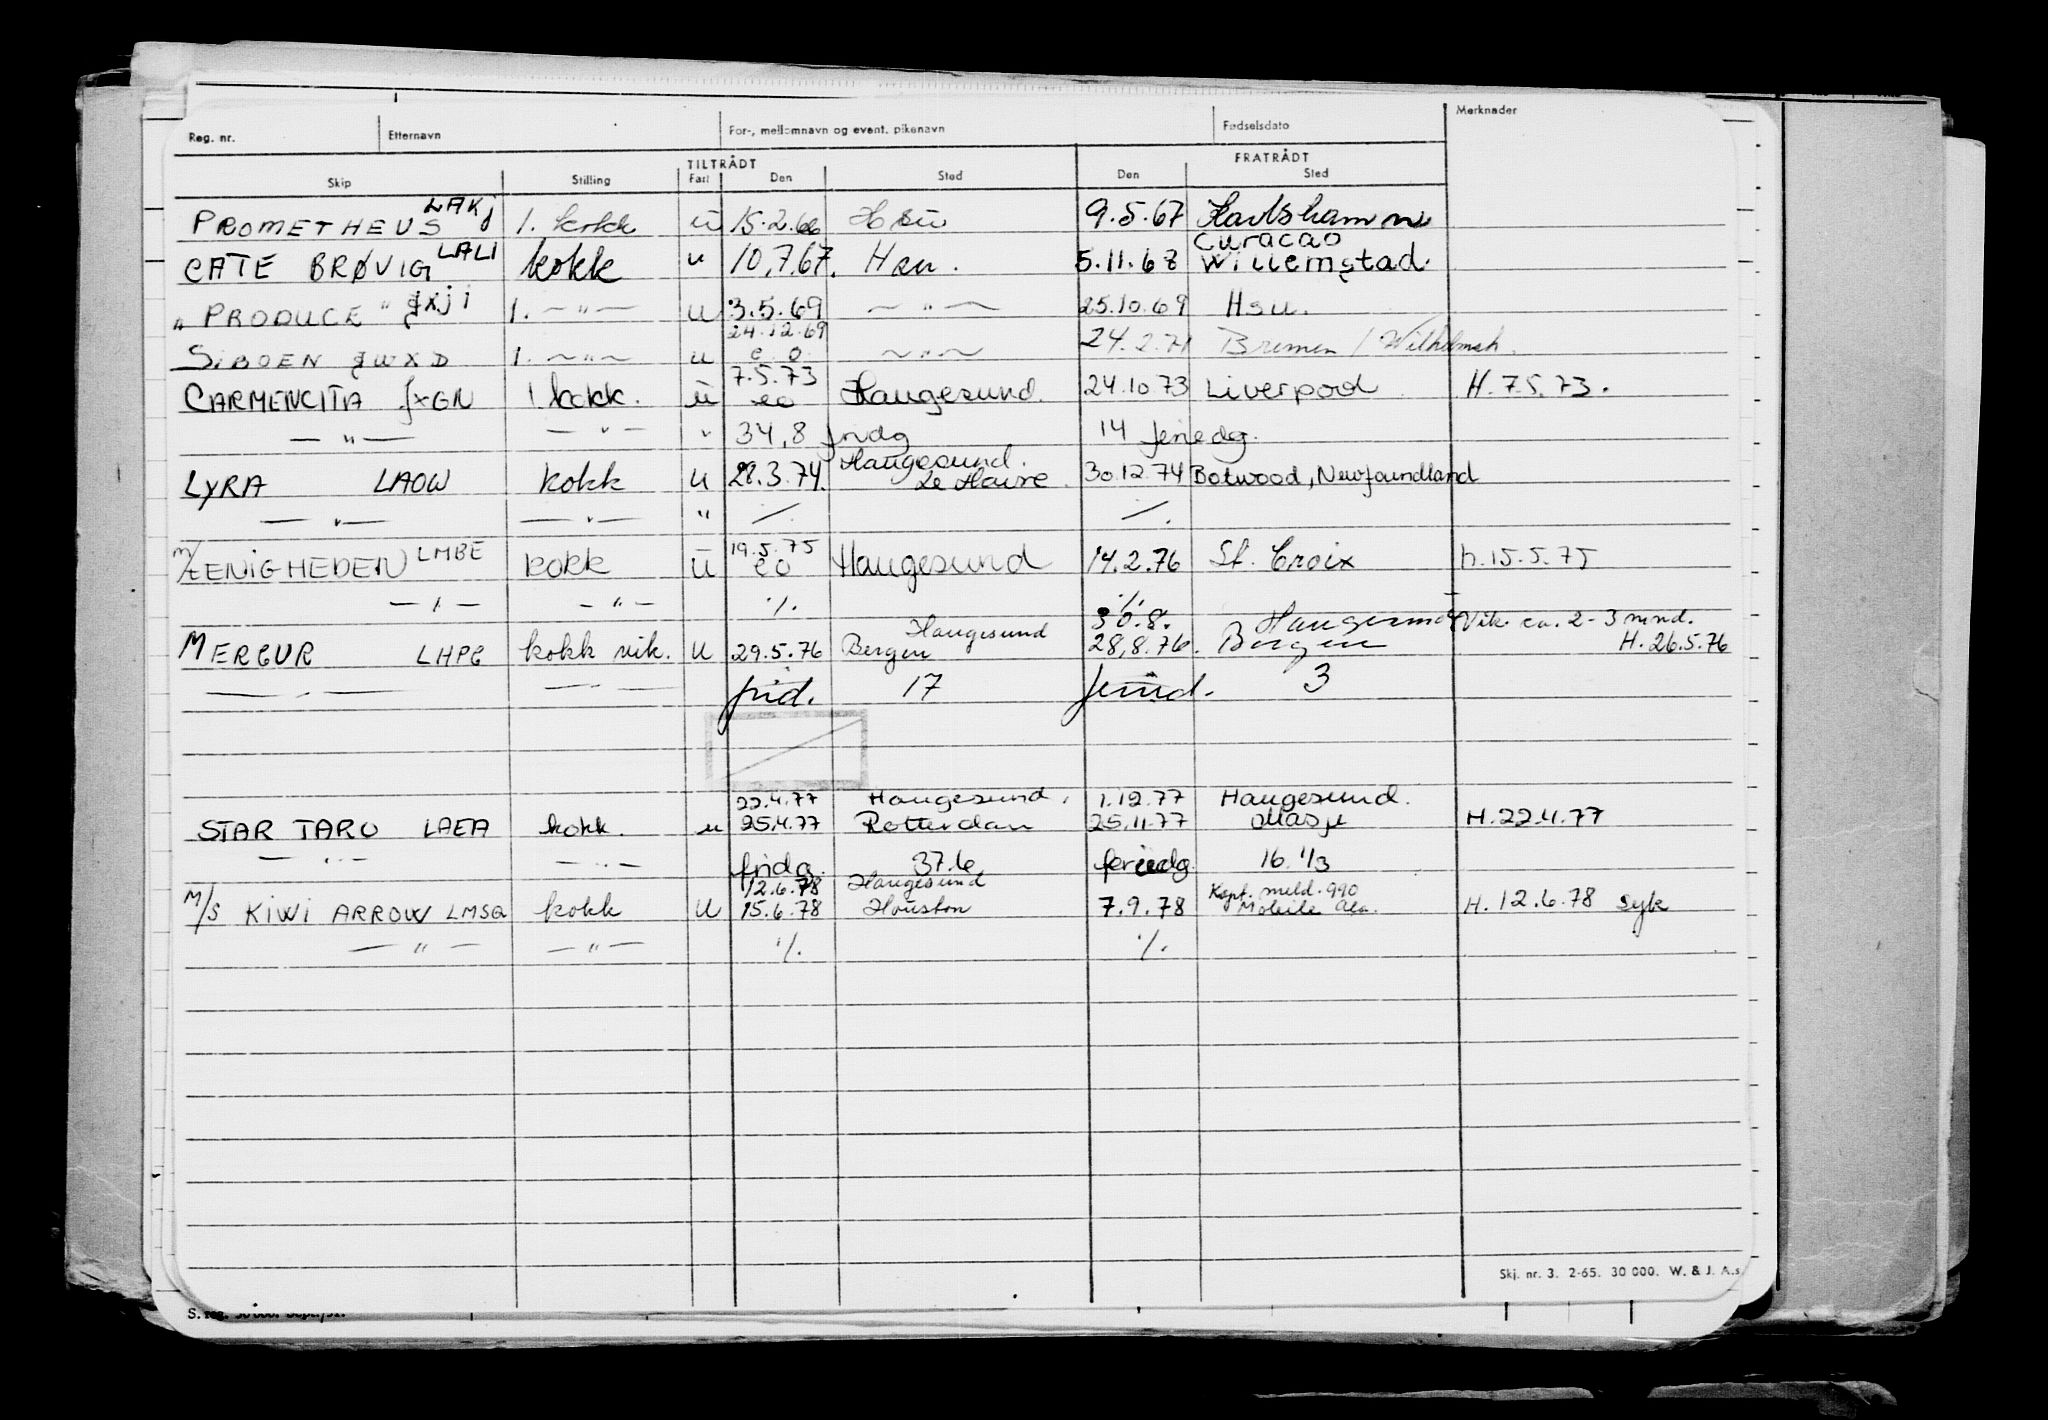 Reg. nr. Etternavn For-, mellomnavn og event. pikenavn Fødselsdato Merknader
TILTRÅDT FRATRÅDT
Skip Stilling Fart Den Sted Den Sted
PROMETHEUS LAKj 1. kokk u 15.2.66 Hsu 9.5.67 Karlshamn
Curacao
CATE BRØVIG LALI kokk u 10.7.67. Hsu. 5.11.68 Willemstad.
" PRODUCE " jxji 1. — " — u 3.5.69 — " — 25.10.69 Hsu.
24.12.69
SIBOEN jWXD 1. — " — u e.o. — " — 24.2.71 Bremen / Wilhelmsh.
7.5.73
CARMENCITA jxGN 1 kokk. u eo Haugesund. 24.10.73 Liverpool H. 7.5.73.
— " — — " — " 34,8 fridg 14 feriedg.
Haugesund.
LYRA LAOW kokk u 28.3.74. Le Havre. 30.12.74 Botwood, Newfoundland
— " — — " — " ·/. ·/.
19.5.75
M/ ENIGHEDEN LMBE kokk u eo Haugesund 14.2.76 St. Croix h.15.5.75
— " — — " — ·/. ·/.
Haugesund 30.8. Haugesund Vik. ca. 2-3 mnd.
MERCUR LHPG kokk vik. u 29.5.76 Bergen 28.8.76. Bergen H. 26.5.76
— " — — " — frid. 17 3
22.4.77 Haugesund. 1.12.77 Haugesund.
STAR TARO LAEA kokk. u 25.4.77 Rotterdam 25.11.77 H. 22.4.77
— " — — " — fridg. 37.6 feriedg. 16. 1/3
12.6.78 Haugesund Kapt. meld. 990
M/S KIWI ARROW LMSQ kokk u 15.6.78 Houston 7.9.78 Mobile Ala. H. 12.6.78 syk
— " — — " — ·/. ·/.
Skj. nr. 3. 2-65. 30 000. W. & J. A.s.